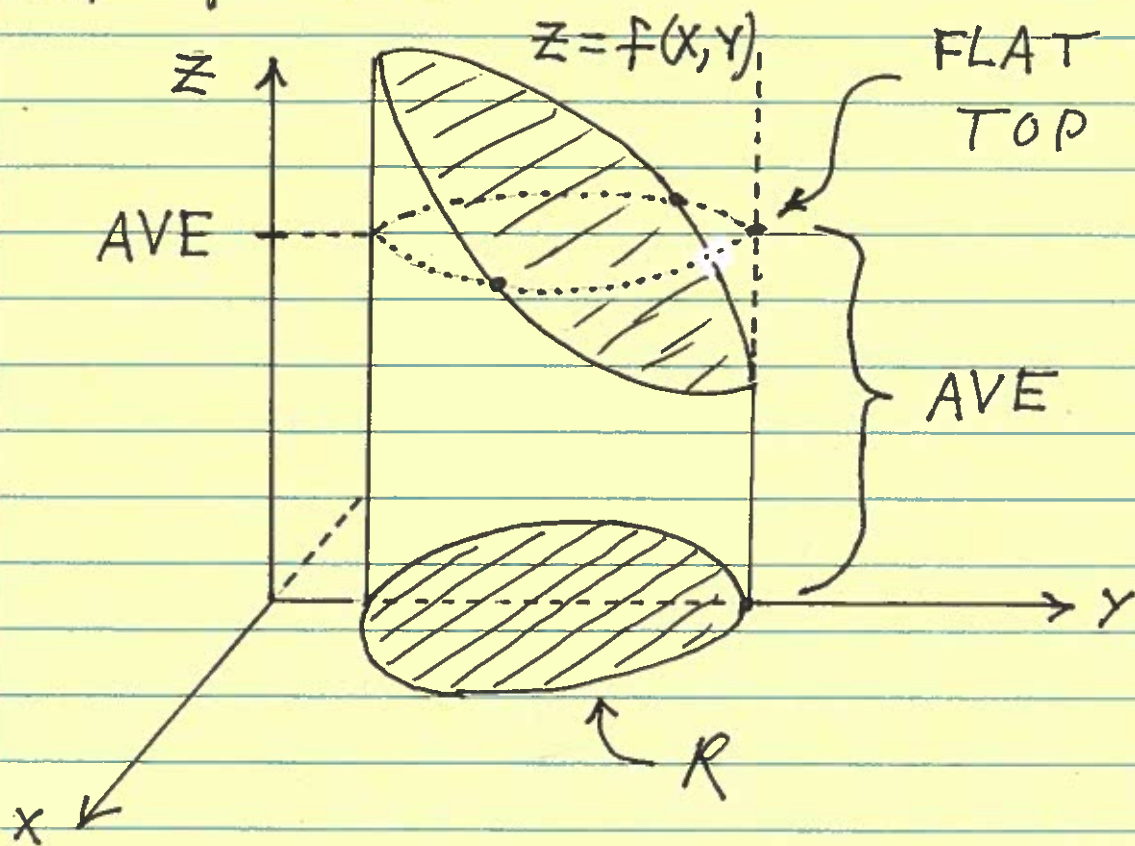 Z = f(X,Y)
FLAT
TOP
Z
AVE
AVE
Y
R
X